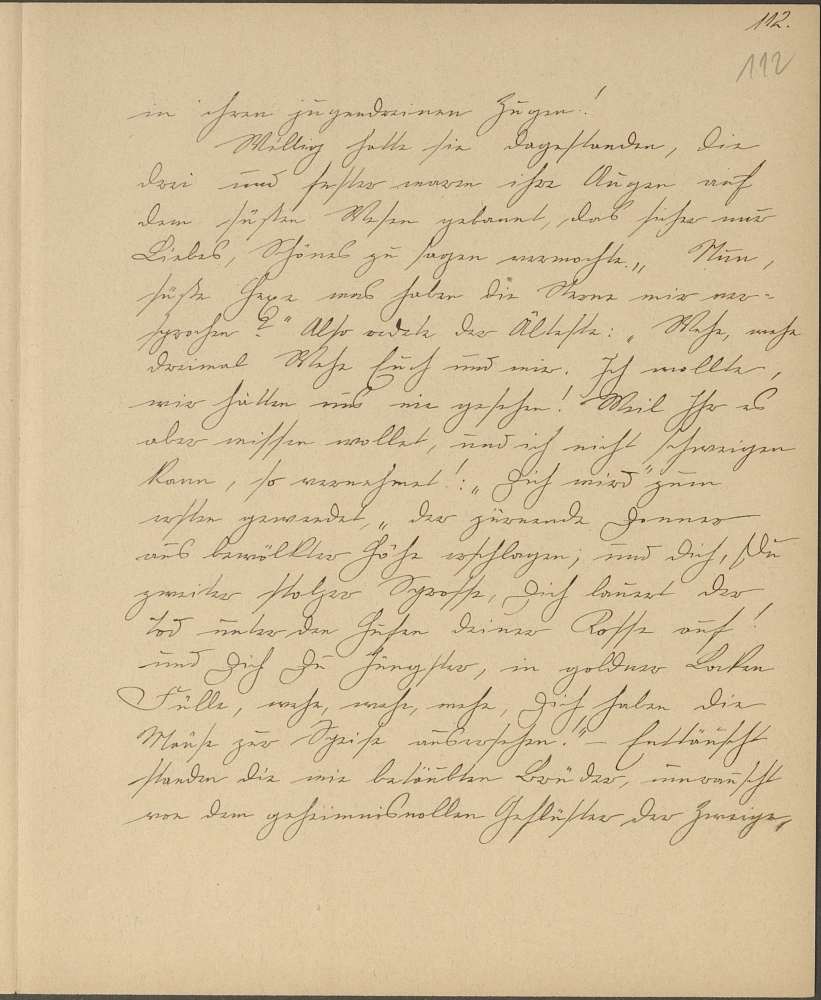 112.
112
in ihren jugendreinen Zügen!
Willig hatte sie dagestanden, die
drei und fester waren ihre Augen auf
dem süßen Wesen gebannt, das sicher nur
Liebes, Schönes zu sagen vermochte. „Nun,
süße Hexe was haben die Sterne mir ver-
sprochen?" Also redete der Älteste: „Wehe, wehe
dreimal Wehe Euch und mir. Ich wollte,
wir hätten uns nie gesehen! Weil Ihr es
aber wissen wollet, und ich nicht schweigen
kann, so vernehmet!: „Dich wird" zum
ersten gewendet, „der zürnende Donner
aus bewölkter Höhe erschlagen; und dich, Du
zweiter stolzer Sprosse, Dich lauert der
Tod unter den Hufen deiner Rosse auf!
und Dich Du Jüngster, in goldner Locken
Fülle, wehe, wehe, wehe, Dich haben die
Mäuse zur Speise ausersehen." – Enttäuscht
standen die wie betäubten Brüder, umrauscht
von dem geheimnisvollen Geflüster der Zweige,